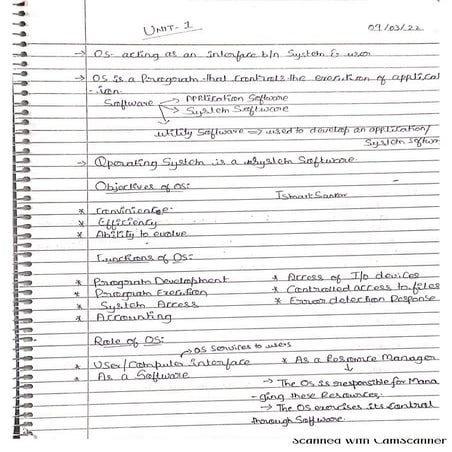 UNIT-1
09/03/22
→ OS- acting as an interface b/n System & user
→ OS is a Program that controls the execution of applicat
-ion.
Software → Application Software
→ System Software
→ Utility Software → used to develop an application/
System Softwa
→ Operating System is a System Software.
Objectives of OS:
Ismart Sankar
* Convinience.
* Efficiency
* Ability to evolve
Functions of OS:
* Program Development
* Program Execution
* System Access
* Accounting
* Access of I/o devices
* Controlled access to files
* Error detection Response
Role of OS:
→ OS Services to users
* User/Computer interface
* As a Software
* As a Resource Manager
→ The OS is responsible for Mana
ging these Resources.
→ The OS exercises its control
through Software.
Scanned with CamScanner